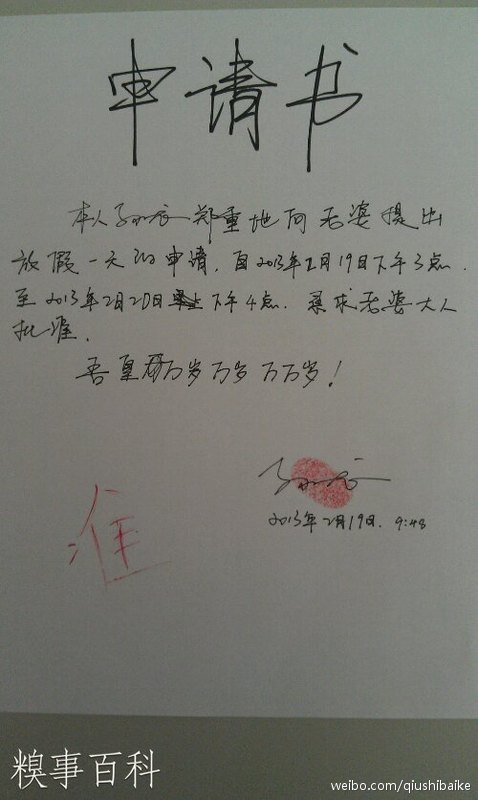 申请书
本人孙 郑重地向老婆提出
放假一天的申请,自2013年2月19日下午3点.
至2013年2月20日下午4点.寻求老婆大人
批准.
吾皇万岁万岁万万岁!
2013年2月19日.9:48
准
糗事百科
weibo.com/qiushibaike